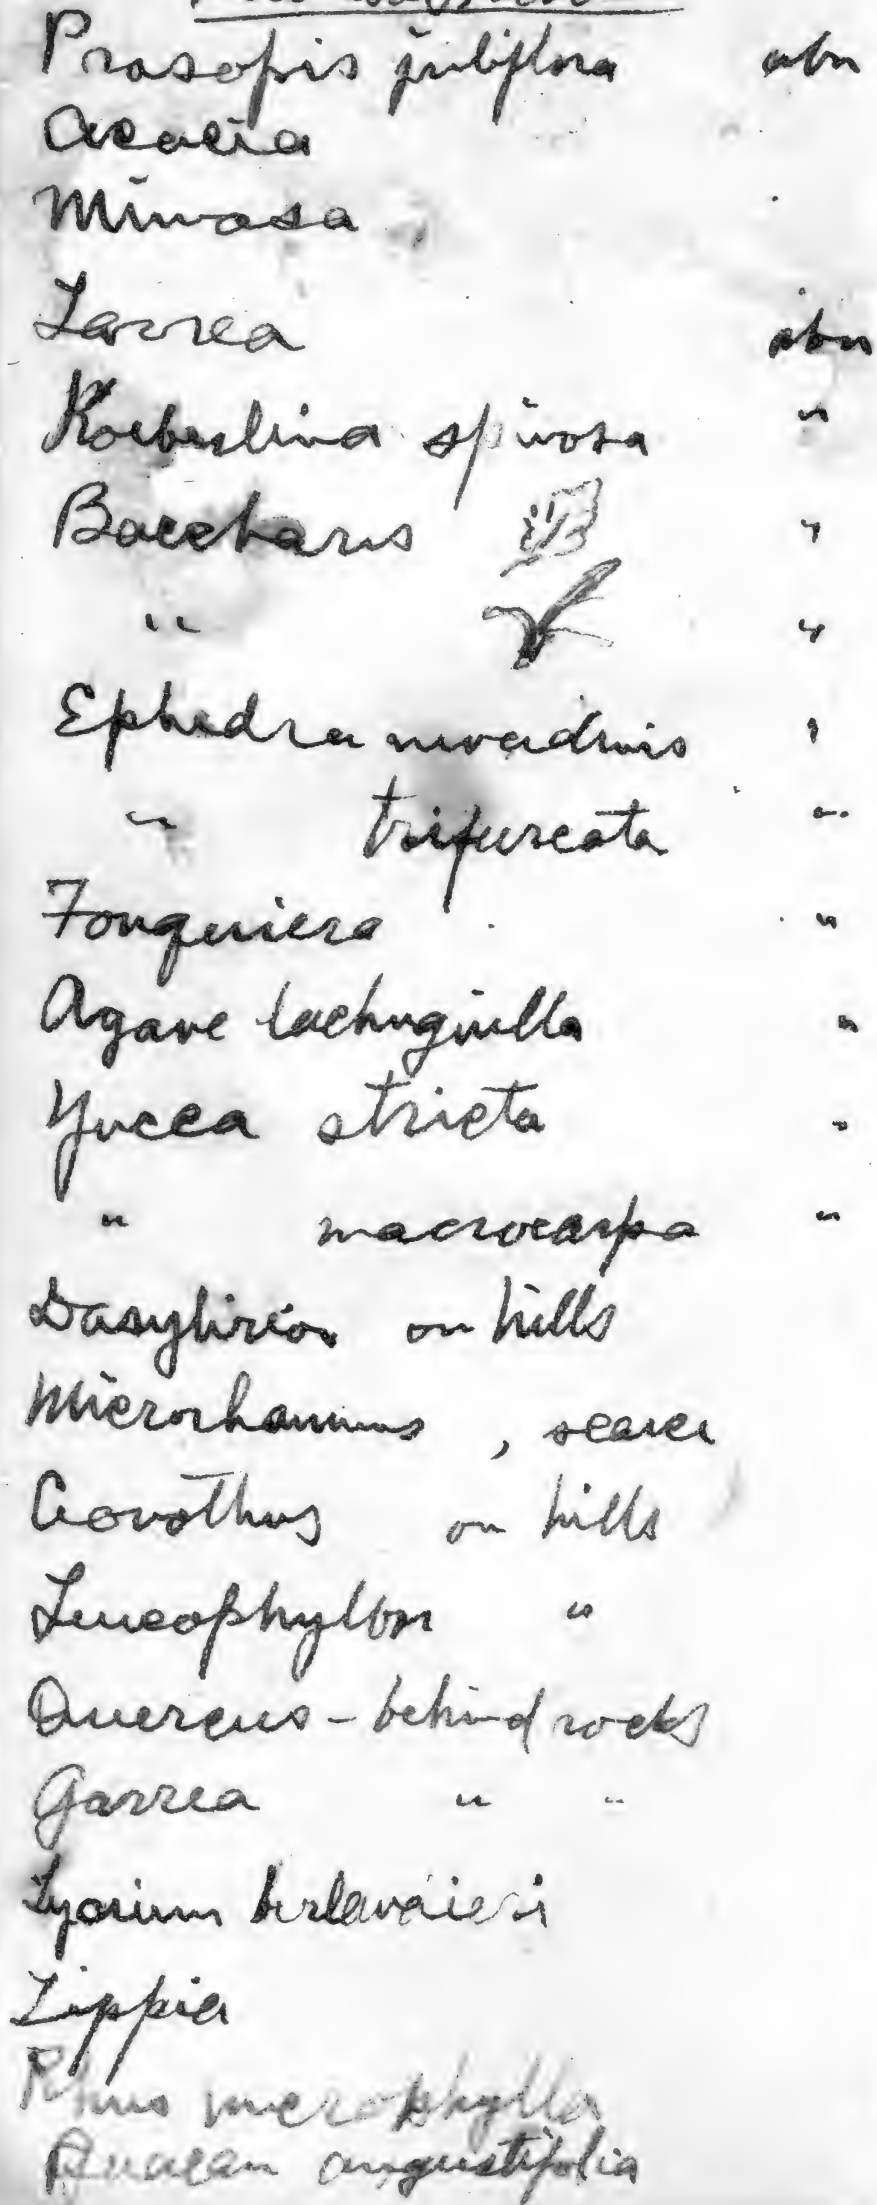 Prosopis juliflora abn
Acacia
Mimosa
Larrea abn
Koeberlinia spinosa "
Baccharis "
" "
Ephedra nevadensis "
" trifurcata "
Fouquiera "
Agave lechuguilla "
Yucca stricta "
" macrocarpa "
Dasylirion on hills
Microrhamnus, scarce
Ceanothus on hills
Leucophyllum "
Quercus - behind rocks
Garrea " "
Lycium berlandieri
Lippia
Rhus microphylla
angustifolia